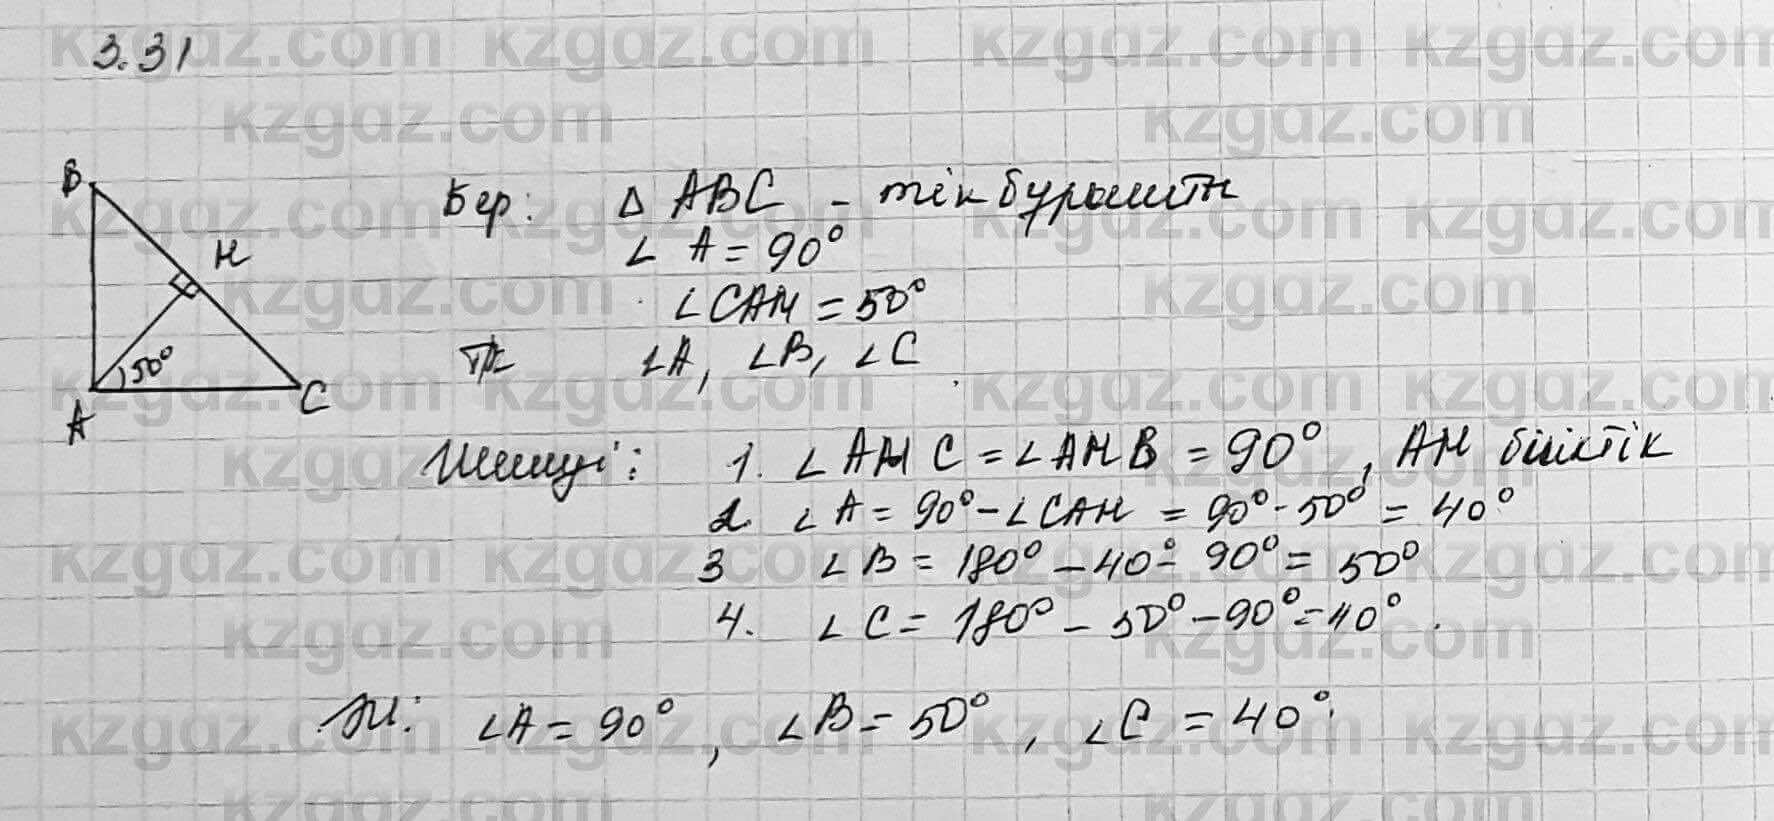 3.31
B
H
50°
A
C
Бер: Δ ABC - тік бұрышты
∠A = 90°
∠CAH = 50°
Т/к ∠A, ∠B, ∠C
Шешуі: 1. ∠AHC = ∠AHB = 90°, AH биіктік
2. ∠A = 90° - ∠CAH = 90° - 50° = 40°
3 ∠B = 180° - 40° - 90° = 50°
4. ∠C = 180° - 50° - 90° = 40°.
Ж: ∠A = 90°, ∠B = 50°, ∠C = 40°.
kzgdz.com